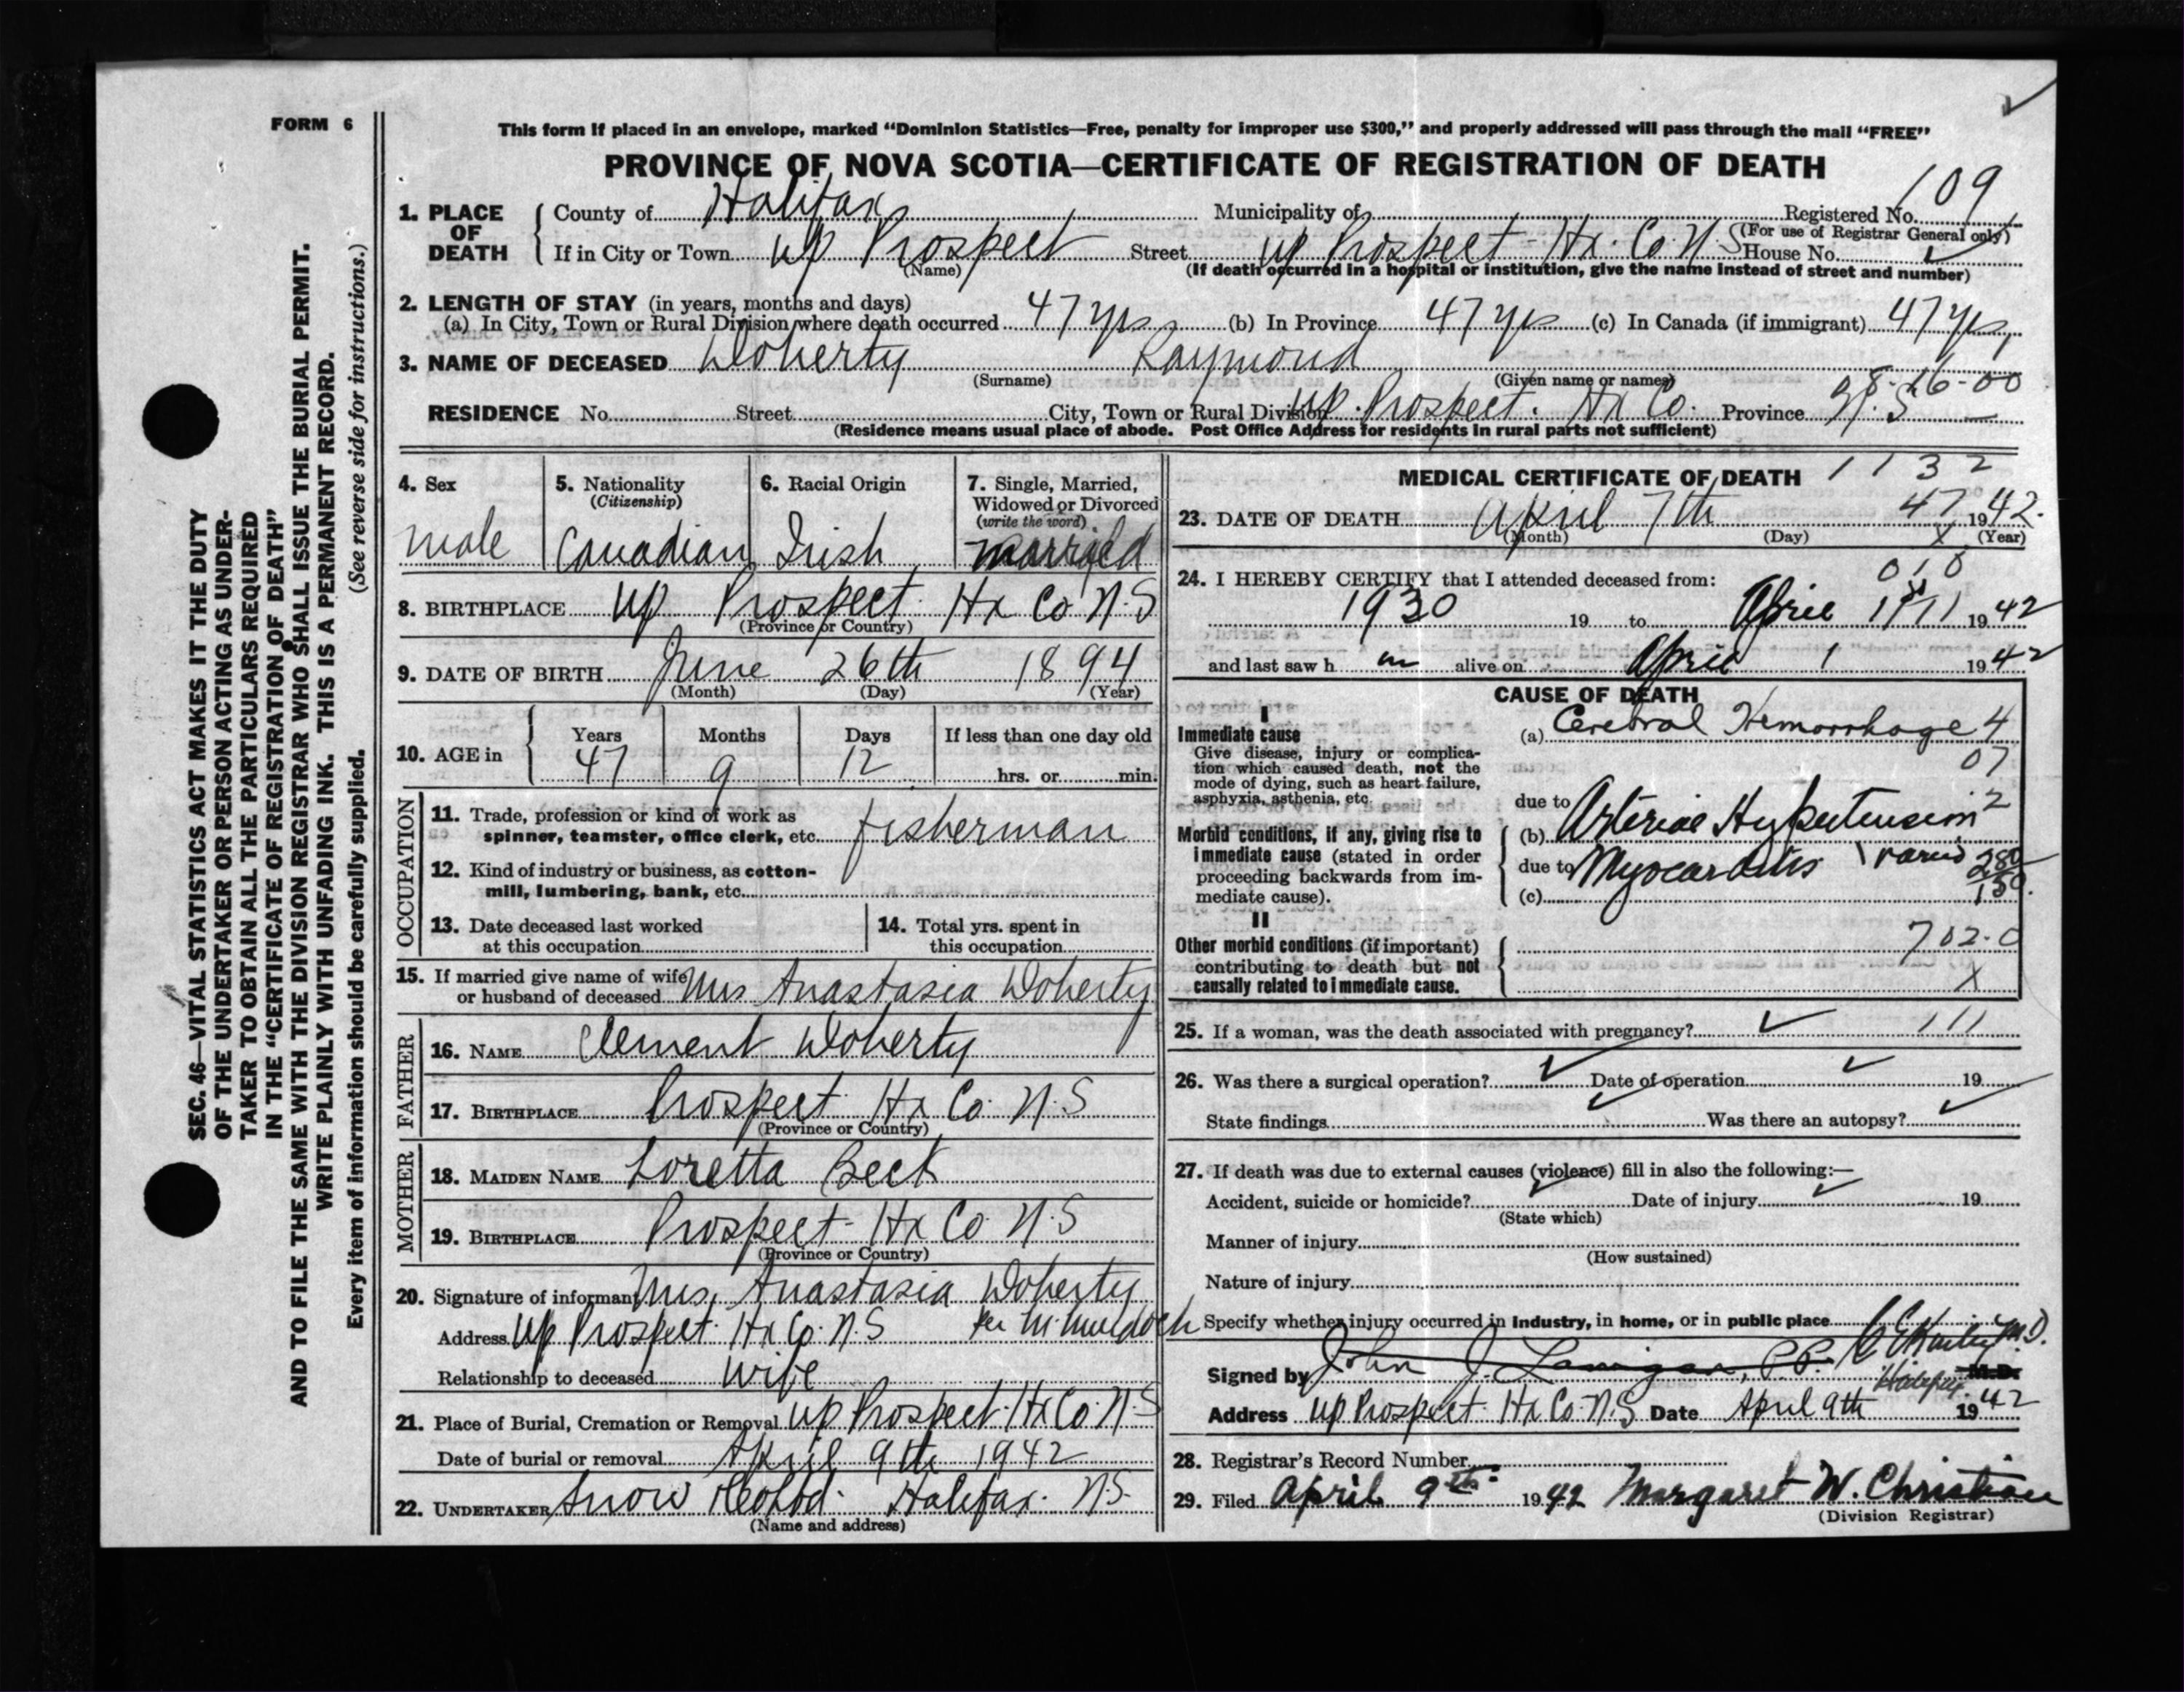 FORM 6
This form if placed in an envelope, marked “Dominion Statistics—Free, penalty for improper use $300,” and properly addressed will pass through the mail “FREE”
PROVINCE OF NOVA SCOTIA—CERTIFICATE OF REGISTRATION OF DEATH
1. PLACE OF DEATH County of Halifax Municipality of Registered No. 109
(For use of Registrar General only)
If in City or Town Up Prospect Street Up Prospect Hx. Co. N.S House No.
(Name) (If death occurred in a hospital or institution, give the name instead of street and number)
2. LENGTH OF STAY (in years, months and days)
(a) In City, Town or Rural Division where death occurred 47 yrs (b) In Province 47 yrs (c) In Canada (if immigrant) 47 yrs
3. NAME OF DECEASED Doherty Raymond
(Surname) (Given name or names)
8-16-00
RESIDENCE No. Street City, Town or Rural Division Up Prospect. Hx Co. Province N.S
(Residence means usual place of abode. Post Office Address for residents in rural parts not sufficient)
4. Sex male
5. Nationality (Citizenship) Canadian
6. Racial Origin Irish
7. Single, Married, Widowed or Divorced (write the word) married
8. BIRTHPLACE Up Prospect Hx Co N.S
(Province or Country)
9. DATE OF BIRTH June 26th 1894
(Month) (Day) (Year)
10. AGE in Years 47 Months 9 Days 12 If less than one day old hrs. or min.
OCCUPATION
11. Trade, profession or kind of work as spinner, teamster, office clerk, etc. fisherman
12. Kind of industry or business, as cotton-mill, lumbering, bank, etc.
13. Date deceased last worked at this occupation
14. Total yrs. spent in this occupation
15. If married give name of wife or husband of deceased Mrs Anastasia Doherty
FATHER
16. NAME Clement Doherty
17. BIRTHPLACE Prospect Hx Co. N.S
(Province or Country)
MOTHER
18. MAIDEN NAME Loretta Beck
19. BIRTHPLACE Prospect- Hx Co N.S
(Province or Country)
20. Signature of informant Mrs. Anastasia Doherty
Address Up Prospect Hx Co. N.S Per M Murdoch
Relationship to deceased Wife
21. Place of Burial, Cremation or Removal Up Prospect. Hx Co. N.S
Date of burial or removal April 9th 1942
22. UNDERTAKER Snow Halifax. N.S.
(Name and address)
MEDICAL CERTIFICATE OF DEATH 1132
47
23. DATE OF DEATH April 7th 1942.
(Month) (Day) (Year)
X
010
24. I HEREBY CERTIFY that I attended deceased from:
1930 19 to April 1942
and last saw h m alive on April 1 1942
CAUSE OF DEATH
I
Immediate cause
Give disease, injury or complication which caused death, not the mode of dying, such as heart failure, asphyxia, asthenia, etc.
(a) Cerebral Hemorrhage 4
07
Morbid conditions, if any, giving rise to immediate cause (stated in order proceeding backwards from immediate cause).
due to
(b) Arterial Hypertension 2
due to Myocarditis 280/150.
(c)
II
Other morbid conditions (if important) contributing to death but not causally related to immediate cause.
702.0
X
25. If a woman, was the death associated with pregnancy? 111
26. Was there a surgical operation? Date of operation 19
State findings Was there an autopsy?
27. If death was due to external causes (violence) fill in also the following:—
Accident, suicide or homicide? Date of injury 19
(State which)
Manner of injury
(How sustained)
Nature of injury
Specify whether injury occurred in industry, in home, or in public place
Signed by John J. Lanigan, P.P. M.D.
M.D.
Halifax.
Address Up Prospect Hx Co. N.S Date April 9th 1942
28. Registrar’s Record Number
29. Filed April 9th 1942 Margaret W. Christian
(Division Registrar)
SEC. 46—VITAL STATISTICS ACT MAKES IT THE DUTY
OF THE UNDERTAKER OR PERSON ACTING AS UNDER-
TAKER TO OBTAIN ALL THE PARTICULARS REQUIRED
IN THE “CERTIFICATE OF REGISTRATION OF DEATH”
AND TO FILE THE SAME WITH THE DIVISION REGISTRAR WHO SHALL ISSUE THE BURIAL PERMIT.
WRITE PLAINLY WITH UNFADING INK. THIS IS A PERMANENT RECORD.
Every item of information should be carefully supplied. (See reverse side for instructions.)